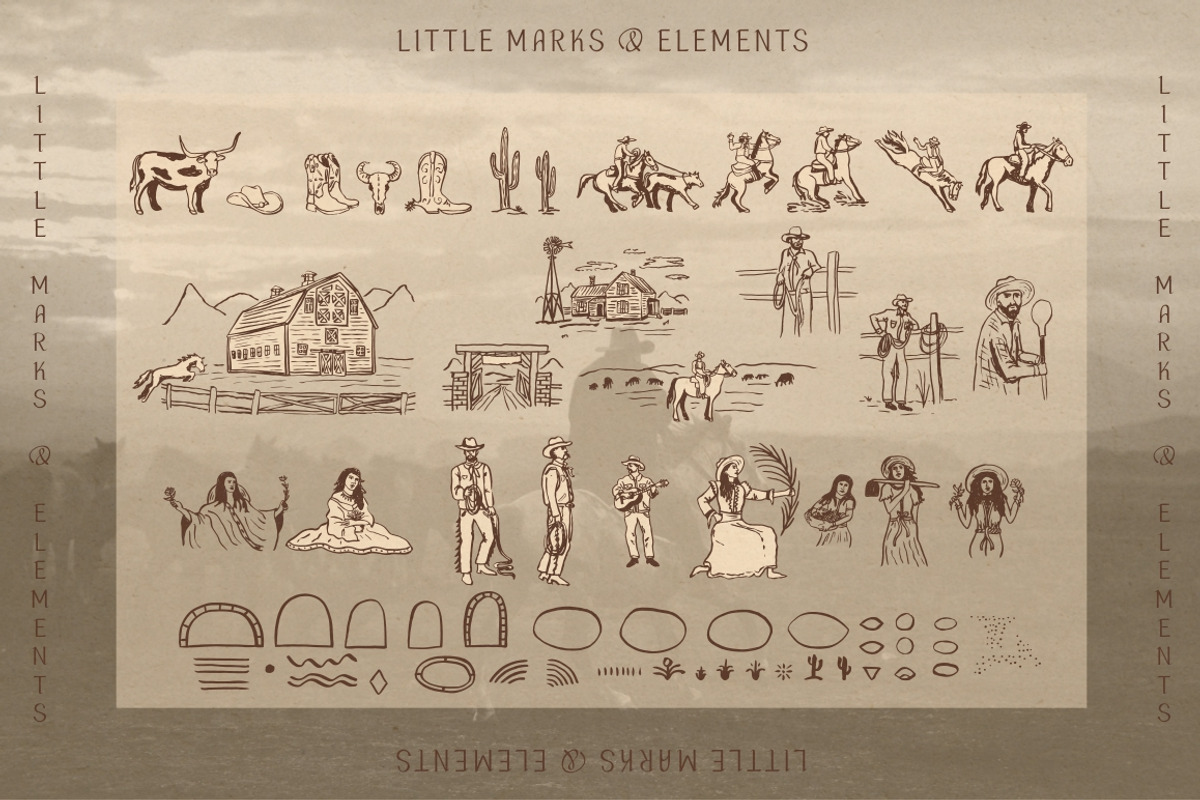 LITTLE MARKS & ELEMENTS
LITTLE MARKS & ELEMENTS
LITTLE MARKS & ELEMENTS
LITTLE MARKS & ELEMENTS